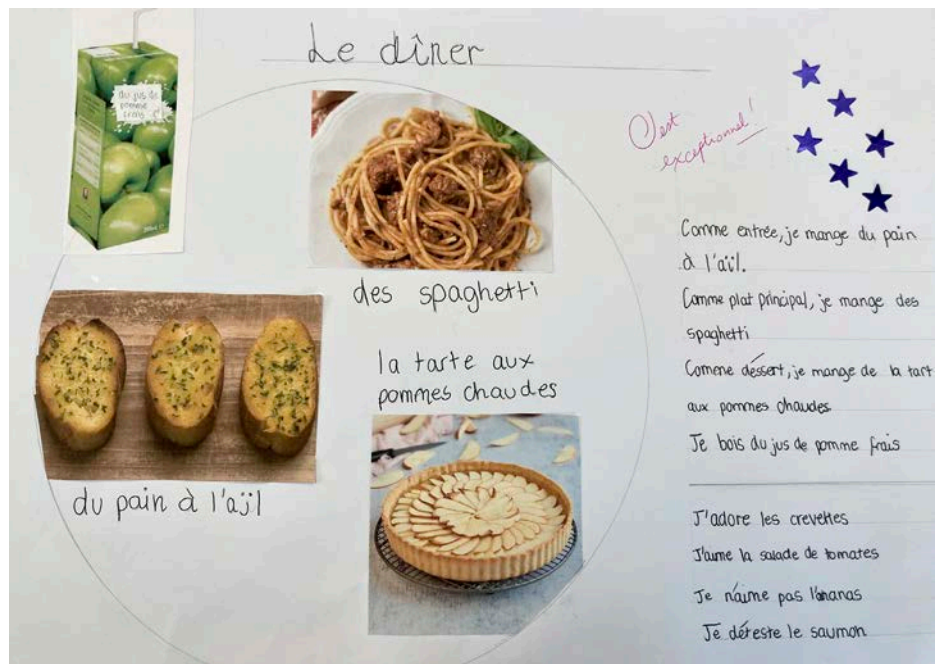 Le dîner
du jus de
pomme
frais
C'est
exceptionnel!
des spaghetti
la tarte aux
pommes chaudes
du pain à l'aïl
Comme entrée, je mange du pain
à l'aïl.
Comme plat principal, je mange des
spaghetti
Comme déssert, je mange de la tart
aux pommes chaudes
Je bois du jus de pomme frais
J'adore les crevettes
J'aime la salade de tomates
Je n'aime pas l'ananas
Je déteste le saumon